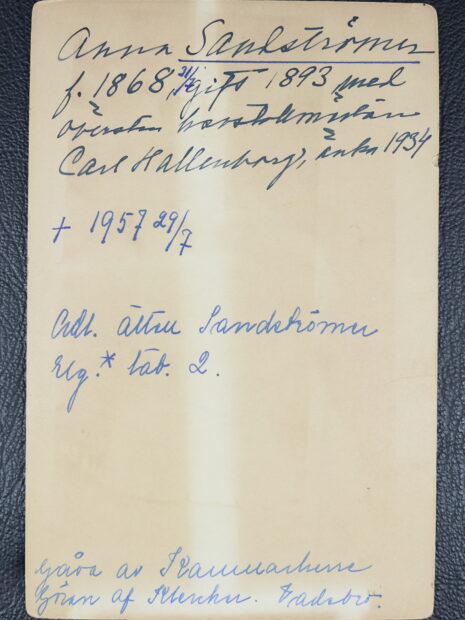 Anna Sandströmer
f. 1868, gift 1893 med
översten
Carl Hallenborg, änka 1934
+ 1957 29/7
Adl. ätten Sandströmer
Elg.* tab. 2.
Gåva av Kammarherre
Göran af Klercker.